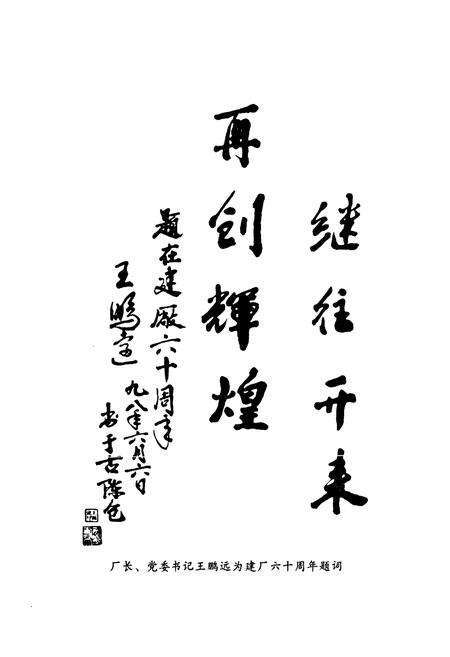 继往开来
再创輝煌
题在建厰六十周年
王鹏远 九八年六月六日
书于古陈仓
厂长、党委书记王鹏远为建厂六十周年题词